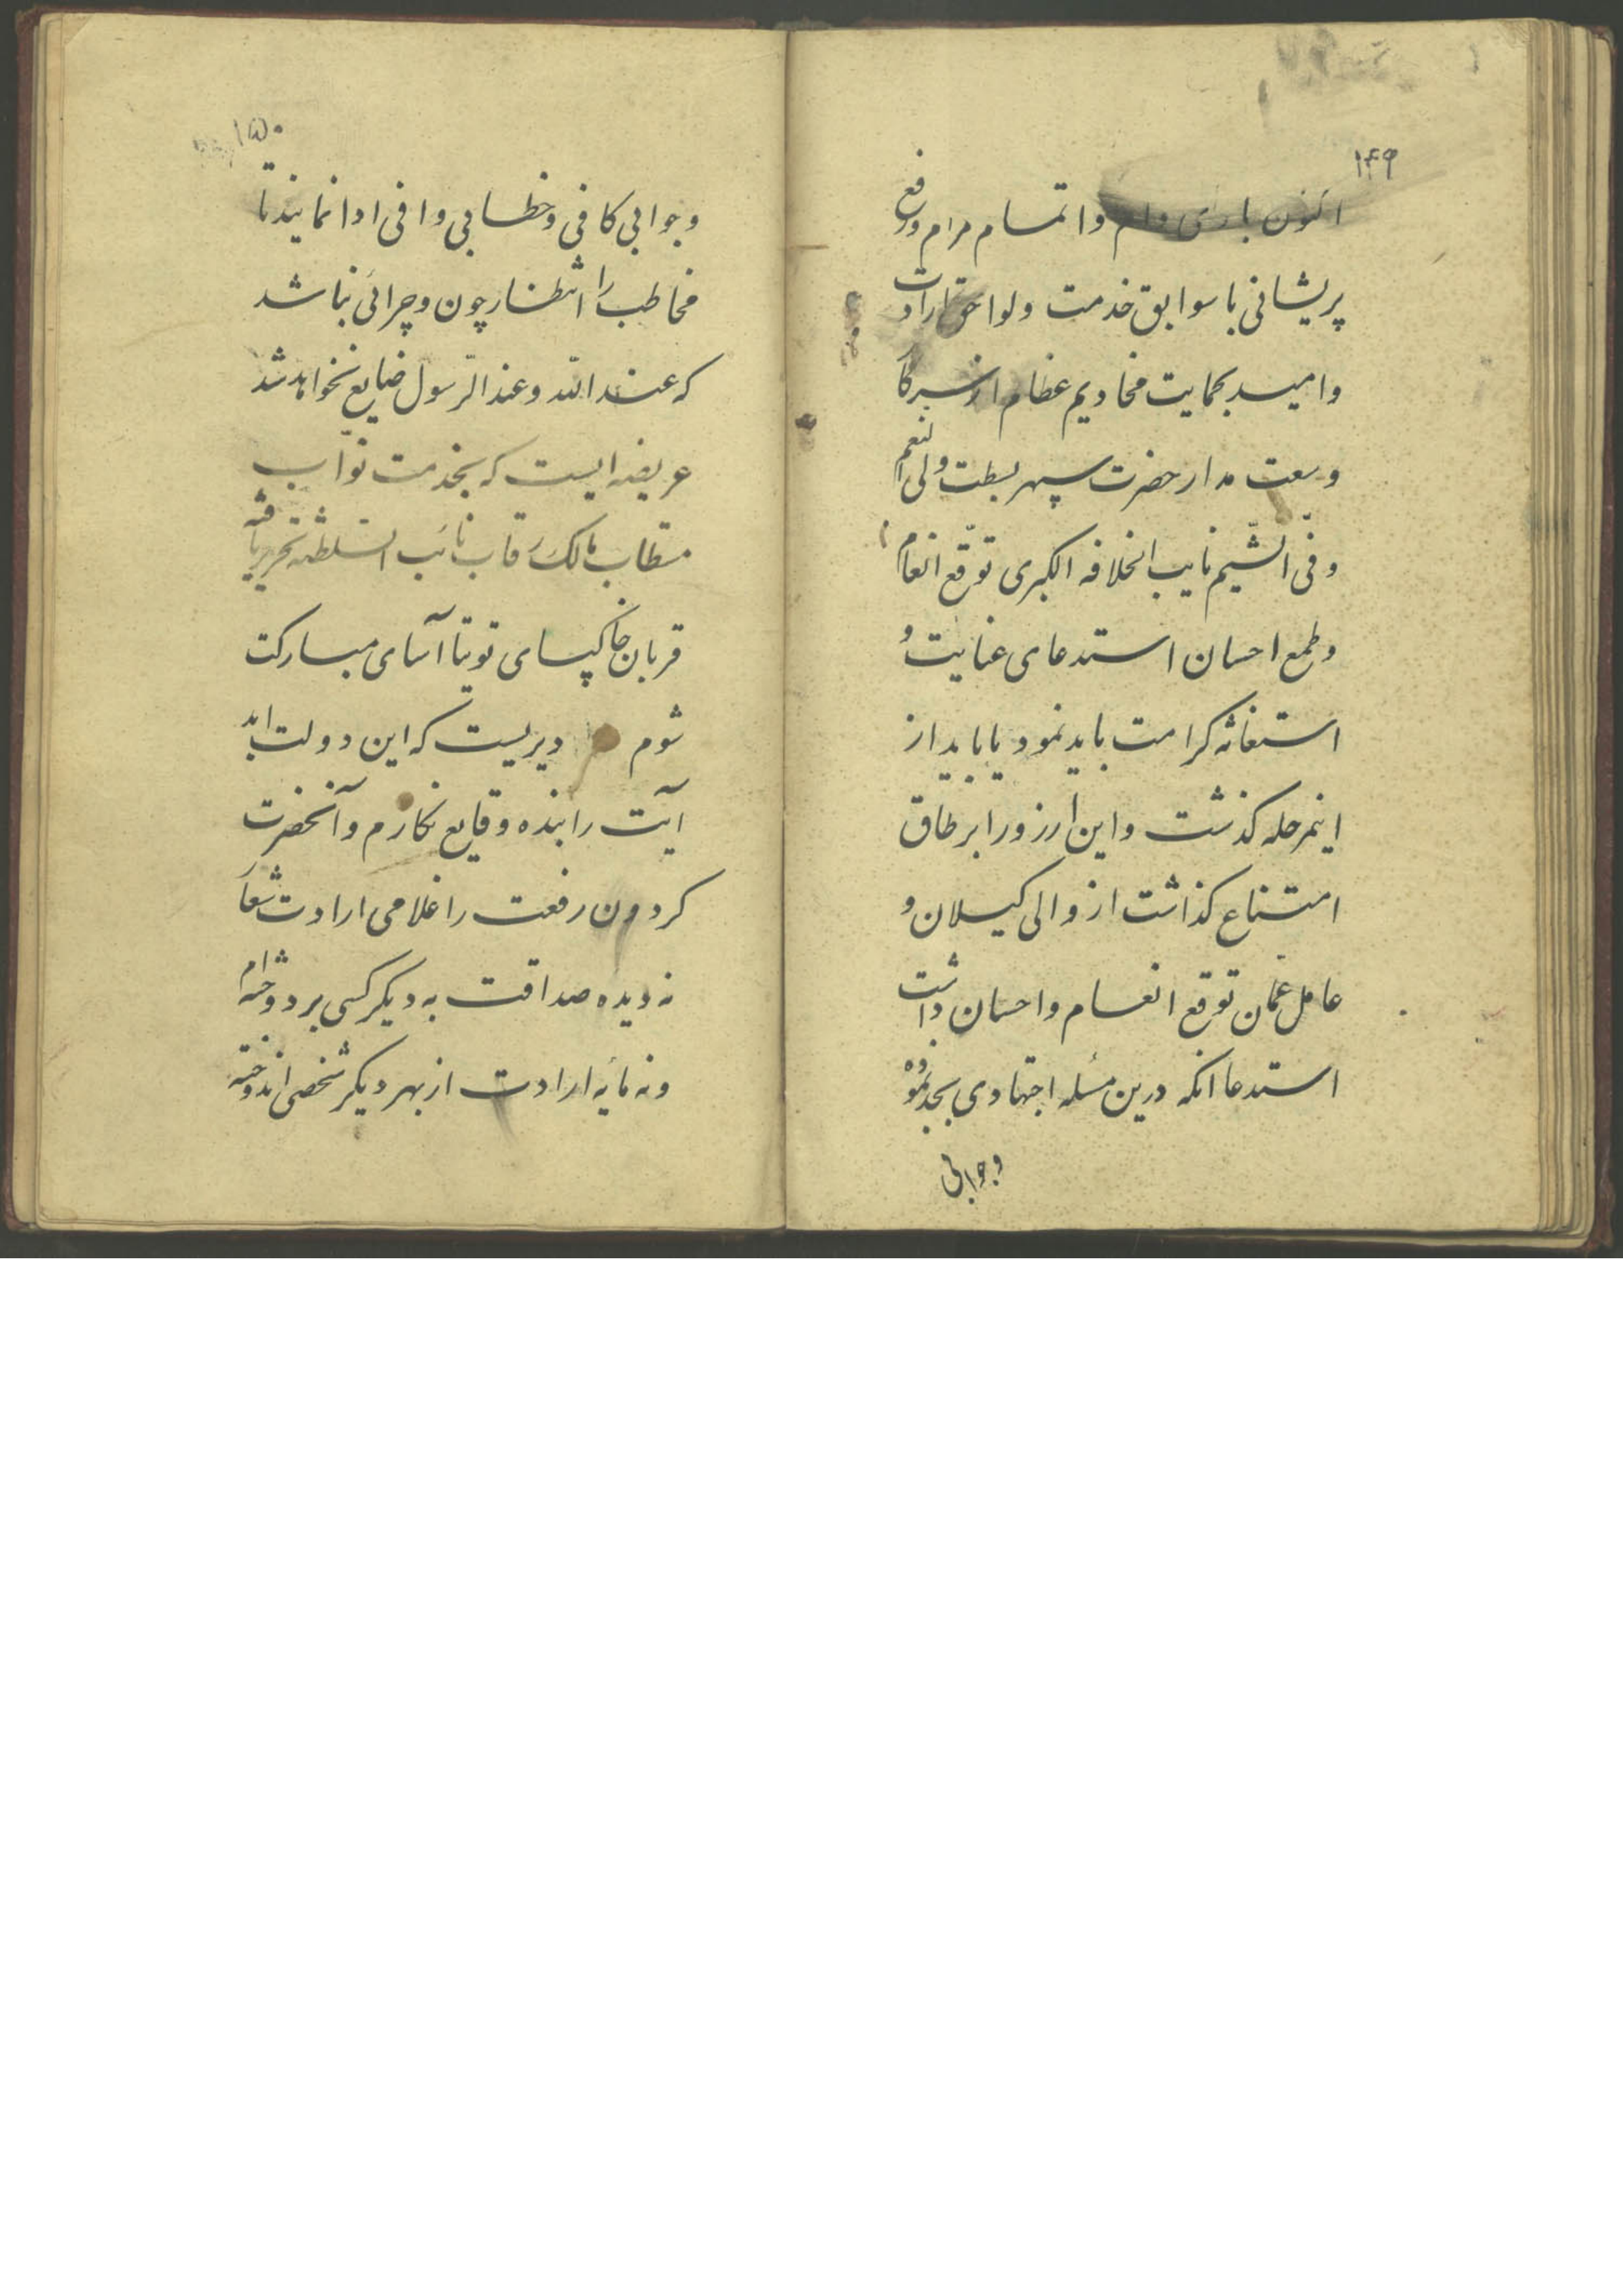 ۱۴۹
اکنون بارای وام و اتمام مرام و رفع
پریشانی با سوابق خدمت و لواحق ارادت
و امید بحمایت مخادیم عظام از سرکا
وسعت مدار حضرت سپهر بسطت ولی النعم
وفّی الشّیم نایب الخلافه الکبری توقّع انعام
و طمع احسان استدعای عنایت و
استغاثه کرامت باید نمود یا باید از
اینمرحله کذشت و این ارزو را بر طاق
امتناع کذاشت از والی کیلان و
عامل عمّان توقع انعام و احسان داشت
استدعا انکه درین مسٔله اجتهادی بجد نموده
وجوابی
۱۵۰
وجوابی کافی و خطابی وافی ادا نمایند تا
مخاطب را انتظار چون و چرائی نباشد
که عند الله و عند الرّسول ضایع نخواهد شد
عریضه ایست که بخدمت نوّاب
مستطاب مالک رقاب نائب السّلطنه تحریر یافته
قربان خاکپای توتیا آسای مبارکت
شوم دیریست که این دولت ابد
آیت را بنده وقایع نکارم و آنحضرت
کردون رفعت را غلامی ارادت شعا
نه دیده صداقت به دیکر کسی بر دوخته ام
و نه مایٔه ارادت از بهر دیکر شخصی اندوخته